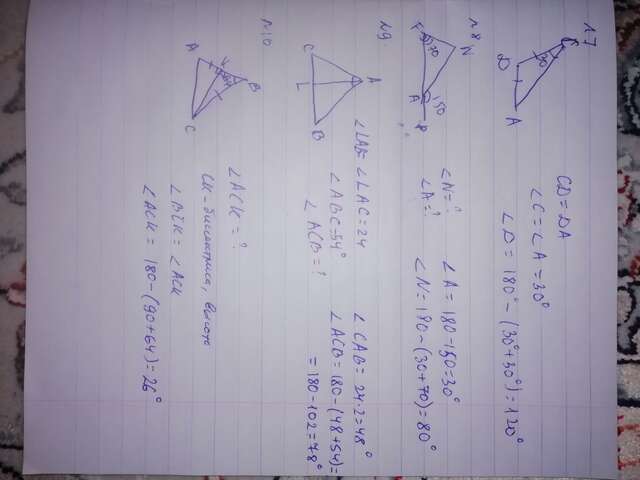 №7
C
30
D
A
CD = DA
∠C = ∠A = 30°
∠D = 180° - (30° + 30°) = 120°
№8
F
70
N
A
150
∠N = ?
∠A = ?
∠A = 180 - 150 = 30°
∠N = 180 - (30 + 70) = 80°
№9
C
A
L
B
∠LAB = ∠LAC = 24
∠ABC = 54°
∠ACB = ?
∠CAB = 24 · 2 = 48°
∠ACB = 180 - (48 + 54) =
= 180 - 102 = 78°
№10
A
K
64
B
C
∠ACK = ?
CK - биссектриса, высота
∠BCK = ∠ACK
∠ACK = 180 - (90 + 64) = 26°